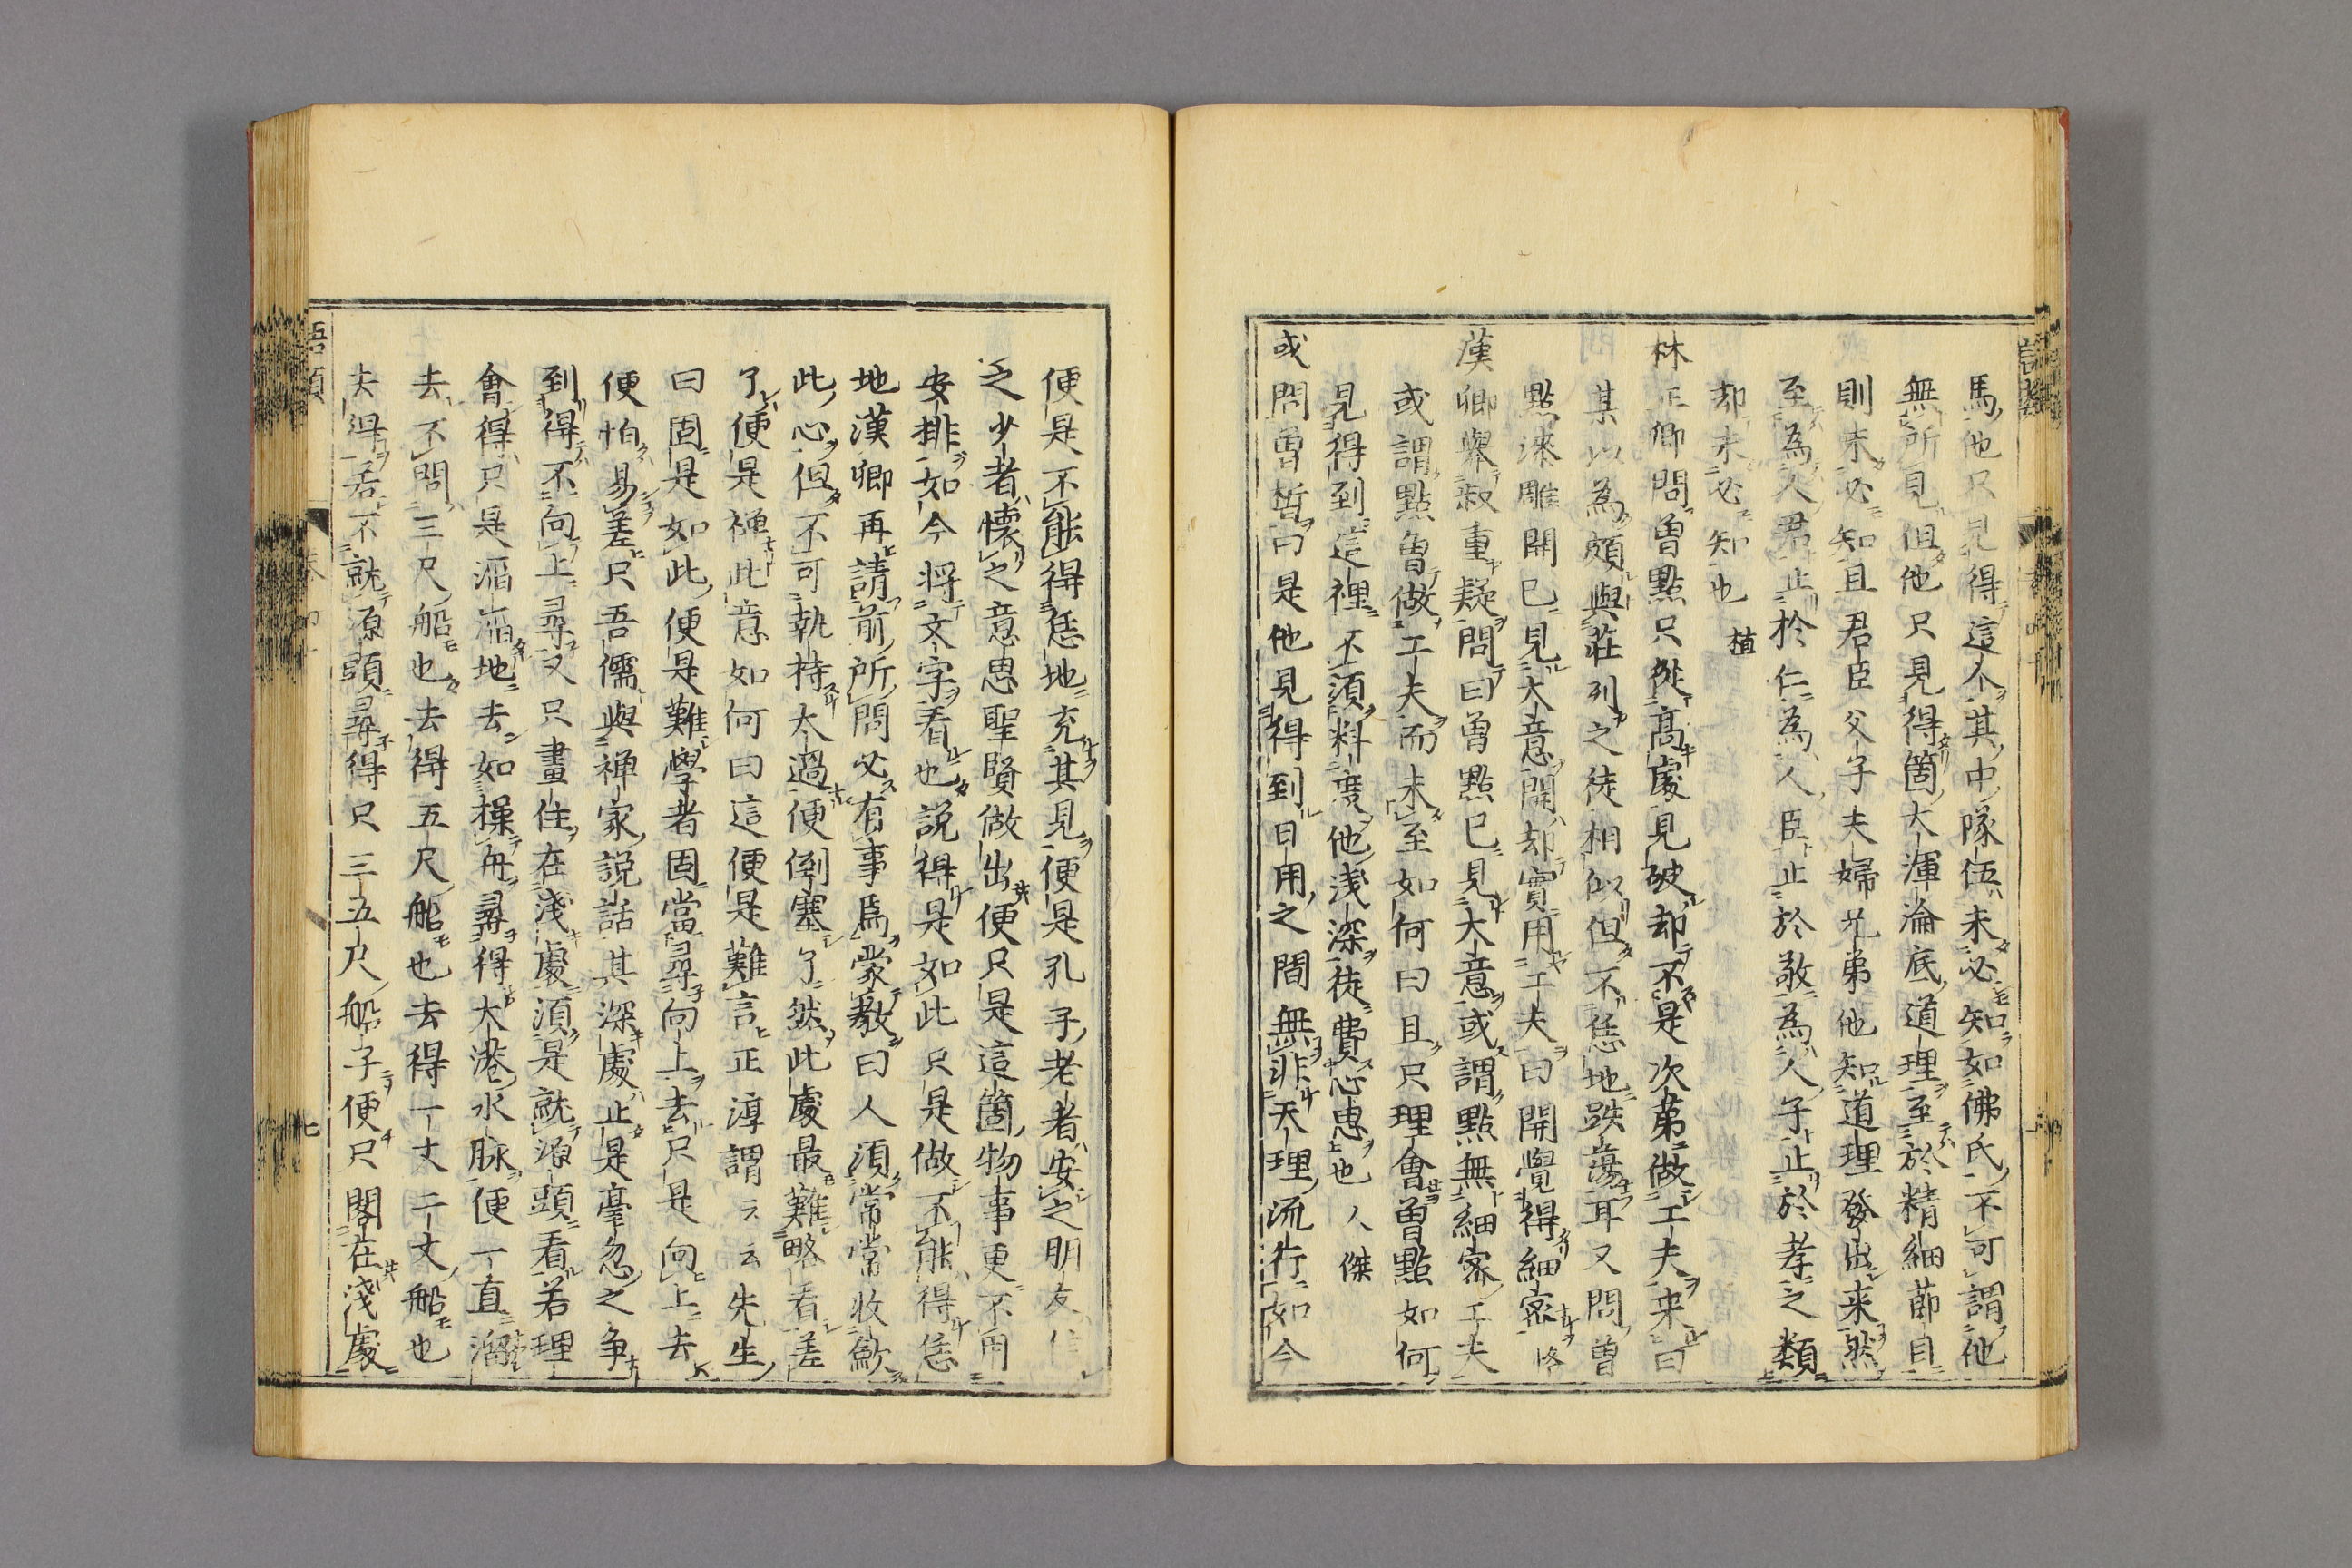 馬他只見得這个其中隊伍未必知如佛氏不可謂他
無所見但他只見得箇大渾淪底道理至於精細節目
則未必知且君臣父子夫婦兄弟他知道理發出来然
至為人君止於仁為人臣止於敬為人子止於孝之類
却未必知也 植
林正卿問曽點只從高處見破却不是次第做工夫来曰
某以為頗與莊列之徒相似但不恁地跌蕩耳又問曽
點漆雕開已見大意開却實用工夫曰開覺得細密 恪
漢卿舉叔重疑問曰曽點已見大意或謂點無細密工夫
或謂點曽做工夫而未至如何曰且只理會曽點如何
見得到這裡不須料度他浅深徒費心思也 人傑
或問曽晳曰是他見得到日用之間無非天理流行如今
便是不能得恁地充其見便是孔子老者安之朋友信
之少者懷之意思聖賢做出便只是這箇物事更不用
安排如今将文字看也說得是如此只是做不能得恁
地漢卿再請前所問必有事焉蒙教曰人須常常收歛
此心但不可執持太過便倒塞了然此處最難略看差
了便是禅此意如何曰這便是難言正淳謂云云先生
曰固是如此便是難學者固當尋向上去只是向上去
便怕易差只吾儒與禅家說話其深處止是毫忽之争
到得不向上尋又只畫住在浅處須是就源頭看若理
會得只是滔滔地去如操舟尋得大港水脉便一直溜
去不問三尺船也去得五尺船也去得一丈二丈船也
去得若不就源頭尋得只三五尺船子便只閣在浅處
語類
七